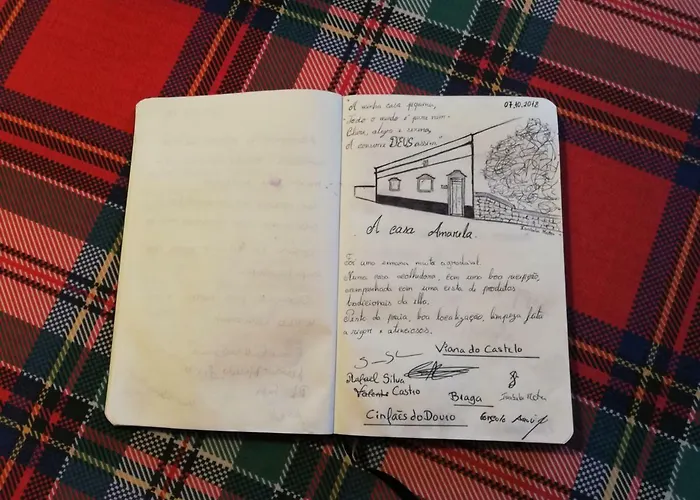 "A minha casa pequena, 07.10.2018
Todo o mundo é para mim.
Clara, alegre e serena,
A conserve DEUS assim"
A casa Amarela.
Foi uma semana muito agradável.
Numa casa acolhedora, com uma boa recepção,
acompanhada com uma cesta de produtos
tradicionais da ilha.
Perto da praia, boa localização, limpeza feita
a rigor e atenciosos.
Viana do Castelo
Rafael Silva
Valente Castro Braga
Cinfães do Douro Gonçalo